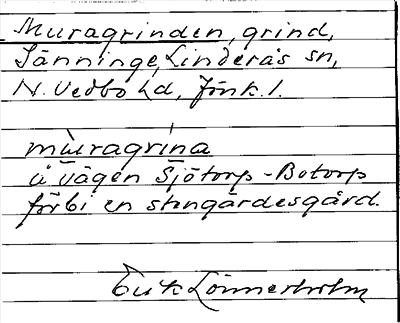 Muragrinden, grind,
Jänninge, Linderås sn,
N. Vedbo hd, Jönk. l.
mùragrína
å vägen Sjötorp-Botorp
förbi en stengärdesgård.
Erik Lönnerholm